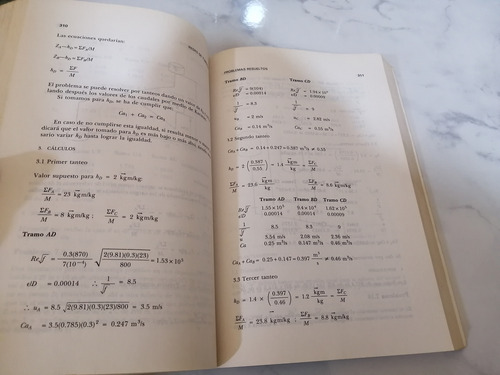 310
Las ecuaciones quedarían:
Z_A − h_D = ΣF_A/M
h_D = ΣF/M
El problema se puede resolver por tanteos dando un valor
lando después los valores de los caudales por medio de
Si tomamos para h_D, se ha de cumplir que:
Ca₁ + Ca₂ = Ca₃
En caso de no cumplirse esta igualdad, si resulta
dicará que el valor tomado para h_D es más bajo o más alto
sario variar h_D hasta lograr la igualdad.
3. CÁLCULOS
3.1 Primer tanteo
Valor supuesto para h_D = 2 kgm/kg
ΣF_A/M = 23 kgm/kg
ΣF_B/M = 8 kgm/kg ; ΣF_C/M = 2 kgm/kg
Tramo AD
Re√f = 0.3(870)/7(10⁻⁴) √(2(9.81)(0.3)(23)/800) = 1.53 × 10⁵
e/D = 0.00014 ∴ 1/√f = 8.5
∴ u_A = 8.5 √(2(9.81)(0.3)(23)/800) = 3.5 m/s
Ca_A = 3.5(0.785)(0.3)² = 0.247 m³/s
PROBLEMAS RESUELTOS 311
Tramo BD Tramo CD
e/D = 0.00014
1/√f = 8.5 1/√f = 9
u = 2 m/s u = 2.62 m/s
Ca = 0.14 m³/s Ca = 0.55 m³/s
Ca_A + Ca_B = 0.14 + 0.247 = 0.397 m³/s ≠ 0.55
3.2 Segundo tanteo
h_D = 2 (0.397/0.55) = 1.4 kgm/kg = ΣF_C/M
ΣF_A/M = 23.6 kgm/kg ΣF_B/M = 8.6 kgm/kg
Tramo AD Tramo BD Tramo CD
Re√f 1.55 × 10⁵ 9.4 × 10⁴ 1.62 × 10⁵
e/D 0.00014 0.00014 0.00009
1/√f 8.5 8.3 9
u 3.54 m/s 2.08 m/s 2.36 m/s
Ca 0.25 m³/s 0.147 m³/s 0.46 m³/s
Ca_A + Ca_B = 0.25 + 0.147 = 0.397 m³/s ≠ 0.46 m³/s
3.3 Tercer tanteo
h_D = 1.4 × (0.397/0.46) = 1.2 kgm/kg = ΣF_C/M
ΣF_A/M = 23.8 kgm/kg ; ΣF_B/M = 8.8 kgm/kg